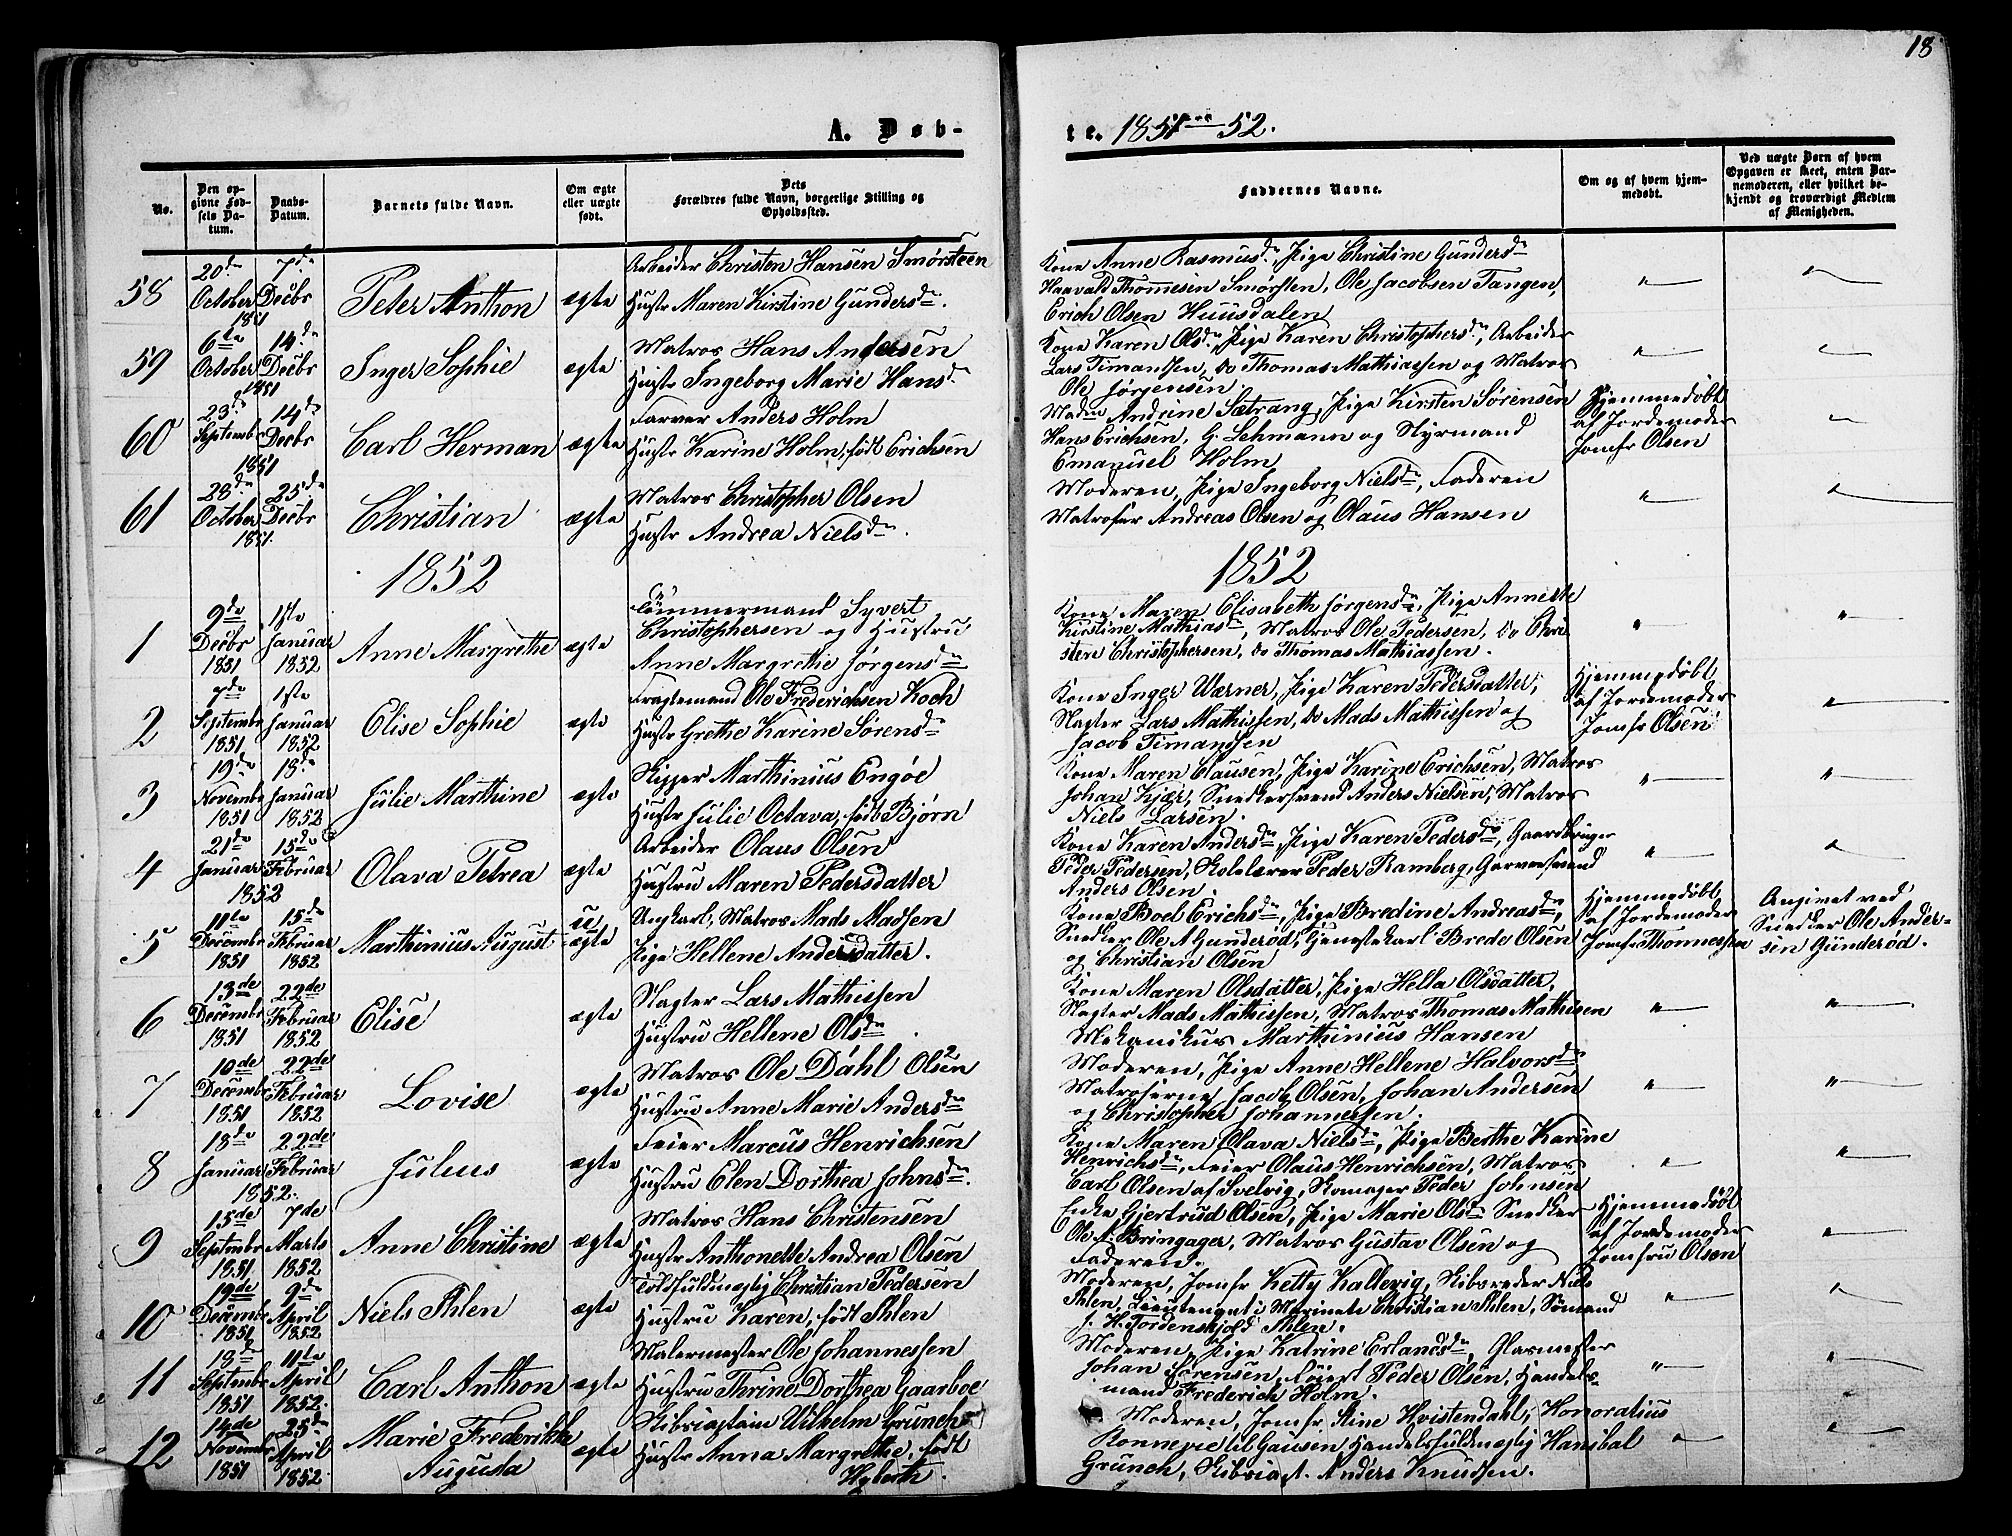 18
A. Døb-
te. 1851 52.
No.
Den op-
givne Fød-
sels Da-
tum.
Daabs-
Datum.
Barnets fulde Navn.
Om ægte
eller uægte
født.
Dets
Forældres fulde Navn, borgerlige Stilling og
Opholdssted.
Faddernes Navne.
Om og af hvem hjem-
medøbt.
Ved uægte Børn af hvem
Opgaven er skeet, enten Bar-
nemoderen, eller hvilket be-
kjendt og troværdigt Medlem
af Menigheden.
58
20de
October
1851
7de
Decbr
Peter Anthon
ægte
Arbeider Christen Hansen Smørsteen
Hustr Maren Kirstine Gundersdr
Kone Anne Rasmusdr, Pige Christine Gundersdr
Haavald Thommesen Smørsten, Ole Jacobsen Tangen,
Erich Olsen Huusdalen
59
6te
October
1851
14de
Decbr
Inger Sophie
ægte
Matros Hans Andersen
Hustr Ingeborg Marie Hansdr
Kone Karen Olsdr, Pige Karen Christophersdr, Arbeider
Lars Timansen, do Thomas Mathiassen og Matros
Ole Jørgensen.
60
23de
Septembr
1851
14de
Decbr
Carl Herman
ægte
Farver Anders Holm
Hustr Karine Holm, født Erichsen
Madm Andrine Sætrang, Pige Kirsten Sørensen
Hans Erichsen, G. Lehmann og Styrmand
Emanuel Holm
Hjemmedøbt
af Jordemoder
Jomfr Olsen
61
28de
October
1851.
25de
Decbr
Christian
ægte
Matros Christopher Olsen
Hustr Andrea Nielsdr.
Moderen, Pige Ingeborg Nielsdr, Faderen
Matroser Andreas Olsen og Olaus Hansen
1852
1852
1
9de
Decbr
1851
1ste
Januar
1852
Anne Margrethe
ægte
Tømmermand Syvert
Christophersen og Hustru
Anne Margrethe Jørgensdr
Kone Maren Elisabeth Jørgensdr, Pige Annette
Kirstine Mathiasdr, Matros Ole Pedersen, do Chri-
sten Christophersen, do Thomas Mathiassen.
2
7de
Septembr
1851
1ste
Januar
1852
Elise Sophie
ægte
Fragtemand Ole Frederichsen Koch
Hustr Grethe Karine Sørensdr
Kone Inger Wærner, Pige Karen Pedersdatter,
Slagter Lars Mathissen, do Mads Mathissen og
Jacob Timandsen
Hjemmedøbt
af Jordemoder
Jomfr Olsen
3
19de
Novembr
1851
18de
Januar
1852
Julie Marthine
ægte
Skipper Marthinius Engøe
Hustr Julie Octava, født Bjørn
Kone Maren Clausen, Pige Karine Erichsen, Matros
Johan Kjær, Snedkersvend Anders Nielsen, Matros
Niels Larsen.
4
21de
Januar
1852
15de
Februar
Olava Petrea
ægte
Arbeider Olaus Olsen
Hustru Maren Pedersdatter
Kone Karen Andersdr, Pige Karen Pedersdr, Gaardbruger
Peder Pedersen, Skolelærer Peder Ramberg, Garversvend
Anders Olsen.
5
11te
Decembr
1851
15de
Februar
1852
Marthinius August
u
ægte
Ungkarl, Matros Mads Madsen
Pige Hellene Andersdatter.
Kone Boel Erichsdr, Pige Bredine Andreasdr,
Snedker Ole A Gunderød, Tjenestekarl Brede Olsen
og Christian Olsen
Hjemmedøbt
af Jordemoder
Jomfr Thommesen
Angivet ved
Snedker Ole Ander-
sen Gunderød.
6
13de
Decembr
1851
22de
Februar
1852
Elise
ægte
Slagter Lars Mathissen
Hustru Hellene Olsdr
Kone Maren Olsdatter, Pige Hella Olsdatter,
Slagter Mads Mathissen, Matros Thomas Mathisen
Mekanikus Marthinius Hansen
7
10de
Decembr
1851
22de
Februar
1852
Lovise
ægte
Matros Ole Dahl Olsen
Hustru Anne Marie Andersdr
Moderen, Pige Anne Hellene Halvorsdr
Matroserne Jacob Olsen, Johan Andersen
og Christopher Johannessen.
8
18de
Januar
1852.
22de
Februar
Julius
ægte
Feier Marcus Henrichsen
Hustru Elen Dorthea Johnsdr.
Kone Maren Olava Nielsdr, Pige Berthe Karine
Henrichsdr, Feier Olaus Henrichsen, Matros
Carl Olsen af Svelvig, Skomager Peder Johnsen
9
15de
Septembr
1851
7de
Marts
1852
Anne Christine
ægte
Matros Hans Christensen
Hustr Anthonette Andrea Olsen
Enke Gjertrud Olsen, Pige Marie Olsdr Snedker
Ole A. Bringager, Matros Gustav Olsen og
Faderen.
Hjemmedøbt
af Jordemoder
Jomfru Olsen
10
19de
Decembr
1851
9de
April
1852
Niels Ihlen
ægte
Toldfuldmegtig Christian Pedersen
Hustru Karen, født Ihlen
Moderen, Jomfr Ketty Kallevig, Skibsreder Niels
Ihlen, Lieutenant i Marinete Christian Ihlen, Sømand
J. H. Tordenskjold Ihlen.
11
18de
Septembr
1851
11te
April
1852.
Carl Anthon
ægte
Malermester Ole Johannessen
Hustru Thrine Dorthea Gaarboe
Moderen, Pige Katrine Erlandsdr, Glasmester
Johan Sørensen, Peder Olsen, Handels-
mand Frederich Holm.
12
14de
Novembr
1851
25de
April
1852.
Marie Frederikke
Augusta
ægte
Skibscaptain Wilhelm Grunch
Hustr Anna Margrethe, født
Hyberth.
Moderen, Jomfr Stine Hvistendahl, Honoratius
Bonnevie til Gausen, Handelsfuldmegtig Hanibal
Grunch, Skibscapt. Anders Knudsen.